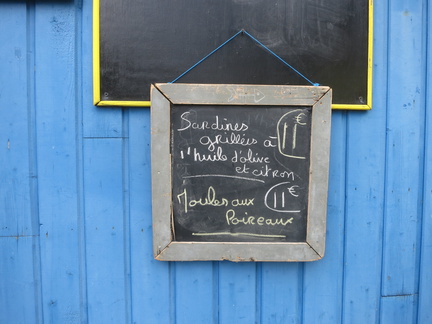 Sardines
grillées à 11€
l'huile d'olive
et citron
Moules aux 11€
Poireaux